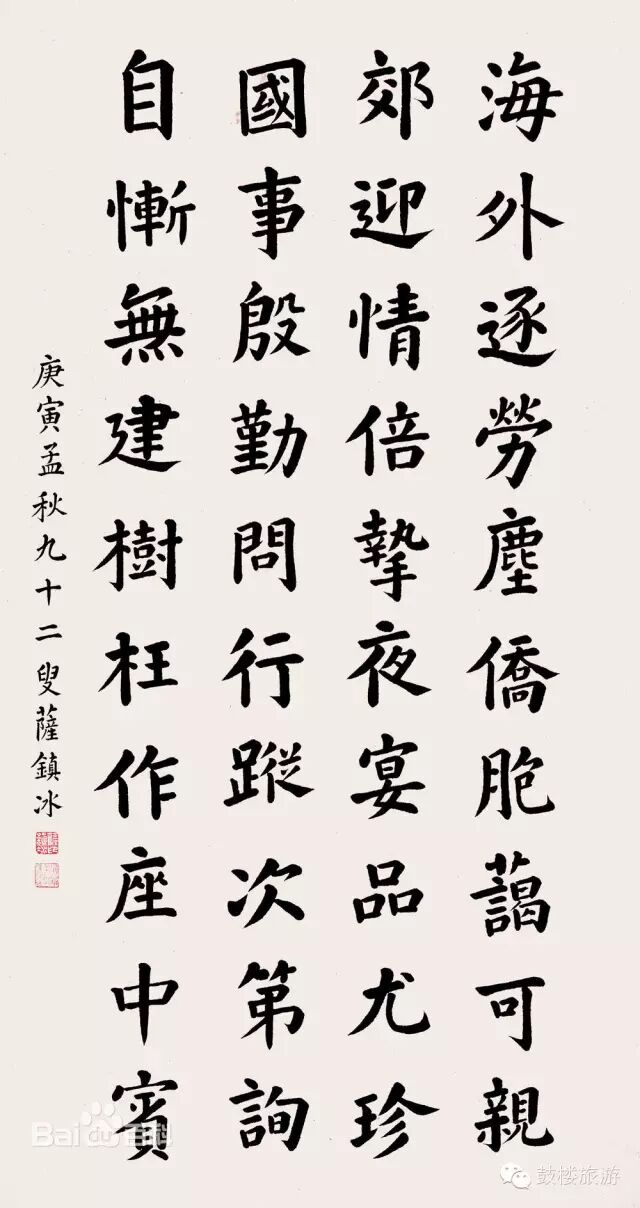 海外逐勞塵僑胞藹可親
郊迎情倍摯夜宴品尤珍
國事殷勤問行蹤次第詢
自慚無建樹枉作座中賓
庚寅孟秋九十二叟薩鎮冰
Bai 百科
鼓楼旅游